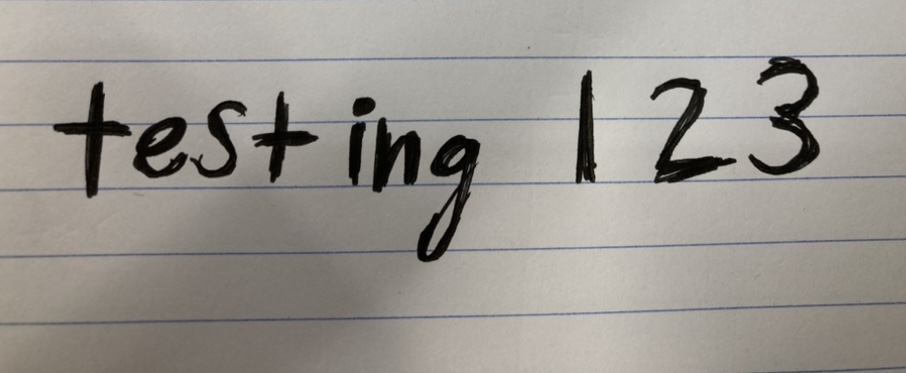 testing 123